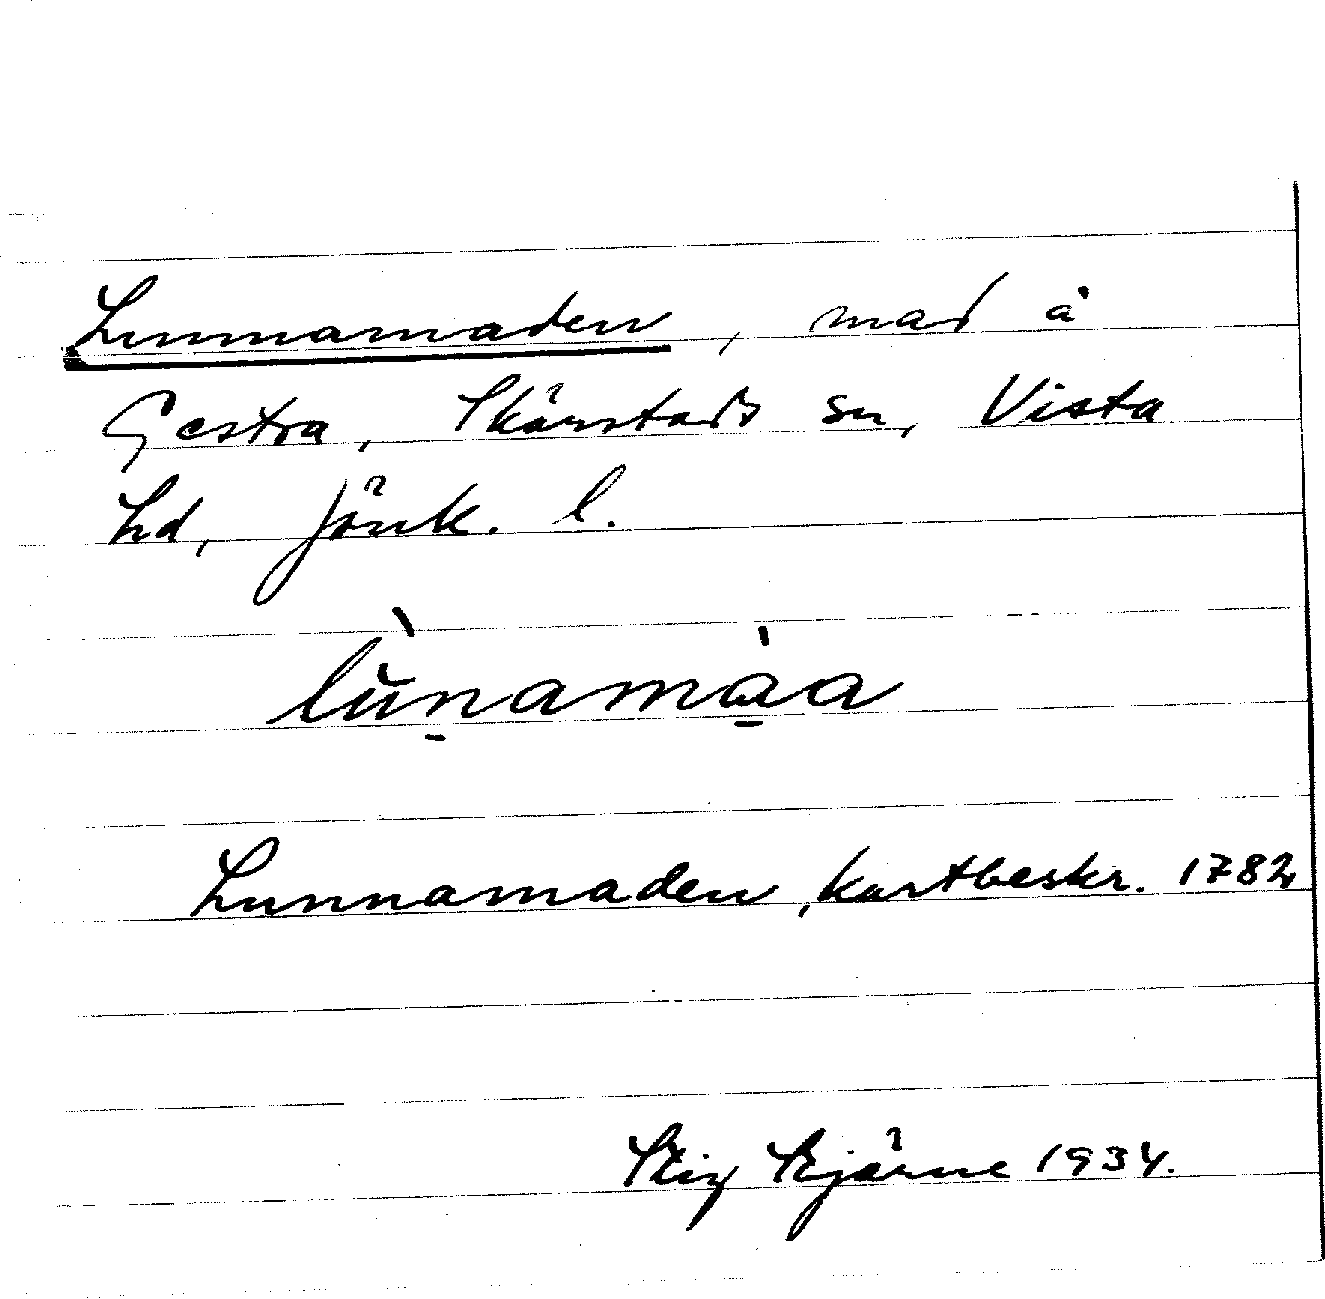 Lunnamaden, mad å
Gestra, Skärstads sn, Vista
hd, Jönk. l.
lùn̠amà̠a
Lunnamaden, kartbeskr. 1782
Stig Stjärne 1934.